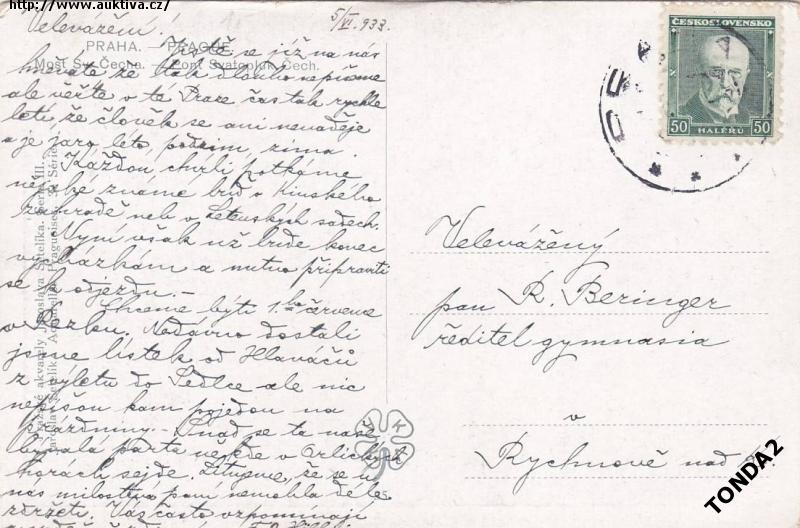 http://www.auktiva.cz/
Velevážení!
5/VI. 933.
PRAHA. — PRAGUE.
Most Sv. Čecha. — Pont Svatopluk Čech.
Jistě se již na nás
hneváte že tak dlouho nepíšeme
ale věřte v té Praze čas tak rychle
letí, že člověk se ani nenaděje
a je jaro, léto, podzim, zima.
Každou chvíli potkáme
nejaké známé buď v Kinského
zahradě neb v Letenských sadech.
Nyní však už bude konec
vycházkám a nutno připraviti
se k odjezdu.—
Chceme býti 1.ho července
v Dostali
jsme lístek od Hlaváčů
z výletu do Sedlce ale nic
nepíšou kam pojedou na
prázdniny.— Snad se ta naše
bývalá parta nejede v Orlických
horách sejde. Litujeme, že se u
nás milostivá paní nemohla déle
zdržeti. Vás často vzpomínají
ČESKOSLOVENSKO
50 HALÉŘŮ 50
Velevážený
pan R. Beringer
ředitel gymnasia
v
Rychnově nad
TONDA2